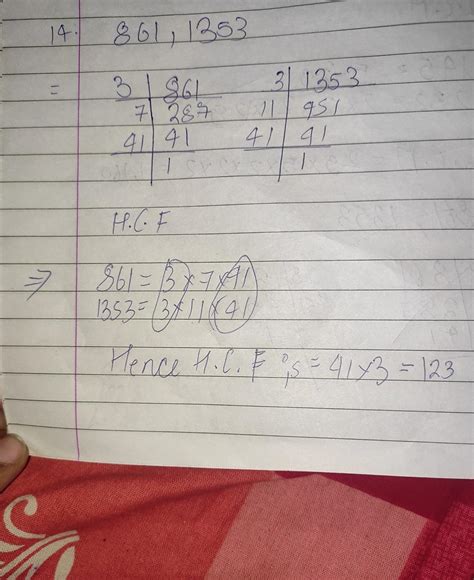 14. 861, 1353
= 3 | 861 3 | 1353
7 | 287 11 | 451
41 | 41 41 | 41
1 1
H.C.F
⇒ 861 = 3×7×41
1353 = 3×11×41
Hence H.C.F is = 41×3 = 123